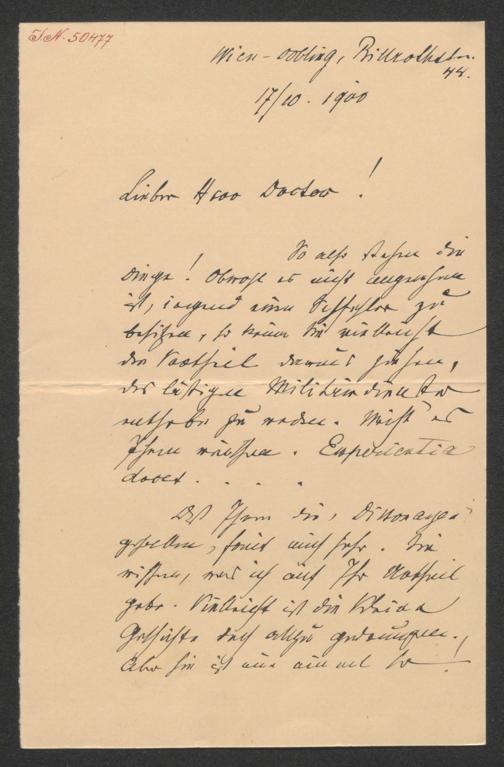 I.N. 50477
Wien-Döbling, Billrothstr.
44.
17/10. 1900
Lieber Herr Doctor!
So also stehen die
Dinge! Obwohl es nicht angenehm
ist, irgend einen Sehfehler zu
besitzen, so können Sie vielleicht
den Vortheil daraus ziehen,
des lästigen Militärdienstes
enthoben zu werden.
Ihnen wünschen. Experientia
docet. . . . .
Daß Ihnen die "Dissonanzen"
gefallen, freut mich sehr. Sie
wissen, was ich auf Ihr Urtheil
gebe. Vielleicht ist die kleine
Geschichte doch allzu gedrungen.
Aber sie ist nun einmal so!